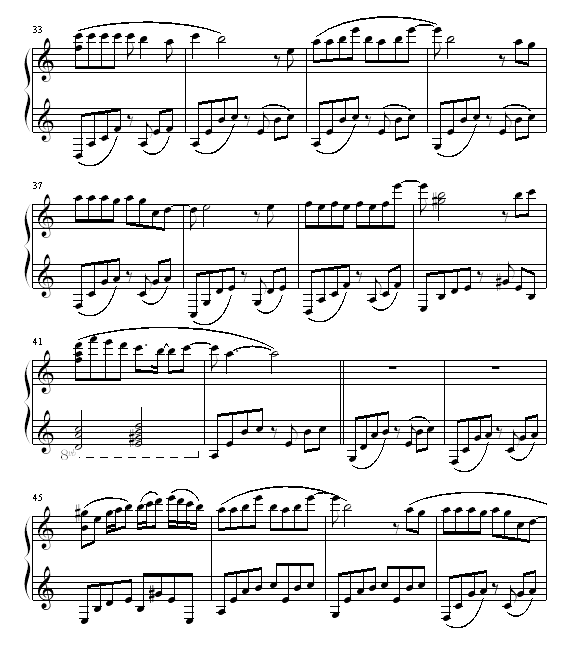 33
37
41
8va
45